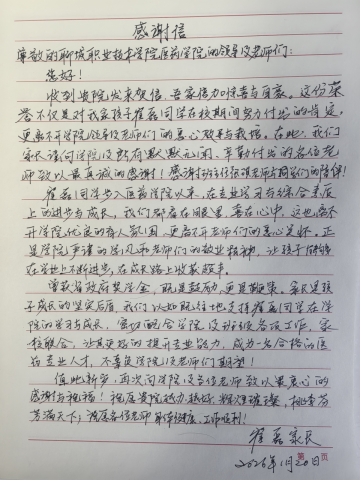 感谢信
尊敬的聊城职业技术学院医药学院的领导及老师们：
您好！
收到贵院发来贺信，吾家倍加惊喜与自豪。这份荣
誉不仅是对我家孩子崔磊同学在校期间努力付出的肯定，
更离不开学院领导及老师们的悉心教导与栽培。在此，我们
家长谨向学院及所有默默无闻、辛勤付出的各位老
师致以最真诚的感谢！感谢
崔磊同学步入医药学院以来，在专业学习与综合素质
上的进步与成长，我们都看在眼里，喜在心中，这也离不
开学院优良的育人氛围，更离不开老师们的悉心关怀。正
是学院严谨的学风和老师们的敬业精神，让孩子能够
在学业上不断进步，在成长路上收获颇丰。
曾获省政府奖学金，既是鼓励，更是鞭策。家长是孩
子成长的坚实后盾，我们会一如既往地支持崔磊同学在学
院的学习与成长，密切配合学院及班级各项工作，家
校联合，让其更好的提升专业能力，成为一名合格的医
药专业人才，不辜负学院及老师们期望！
值此新岁，再次向学院及各位老师致以最衷心的
感谢与祝福！祝愿贵院越办越好，辉煌璀璨，桃李芬
芳满天下；祝愿各位老师身体健康、工作顺利！
崔磊家长
2026年1月20日
第 页